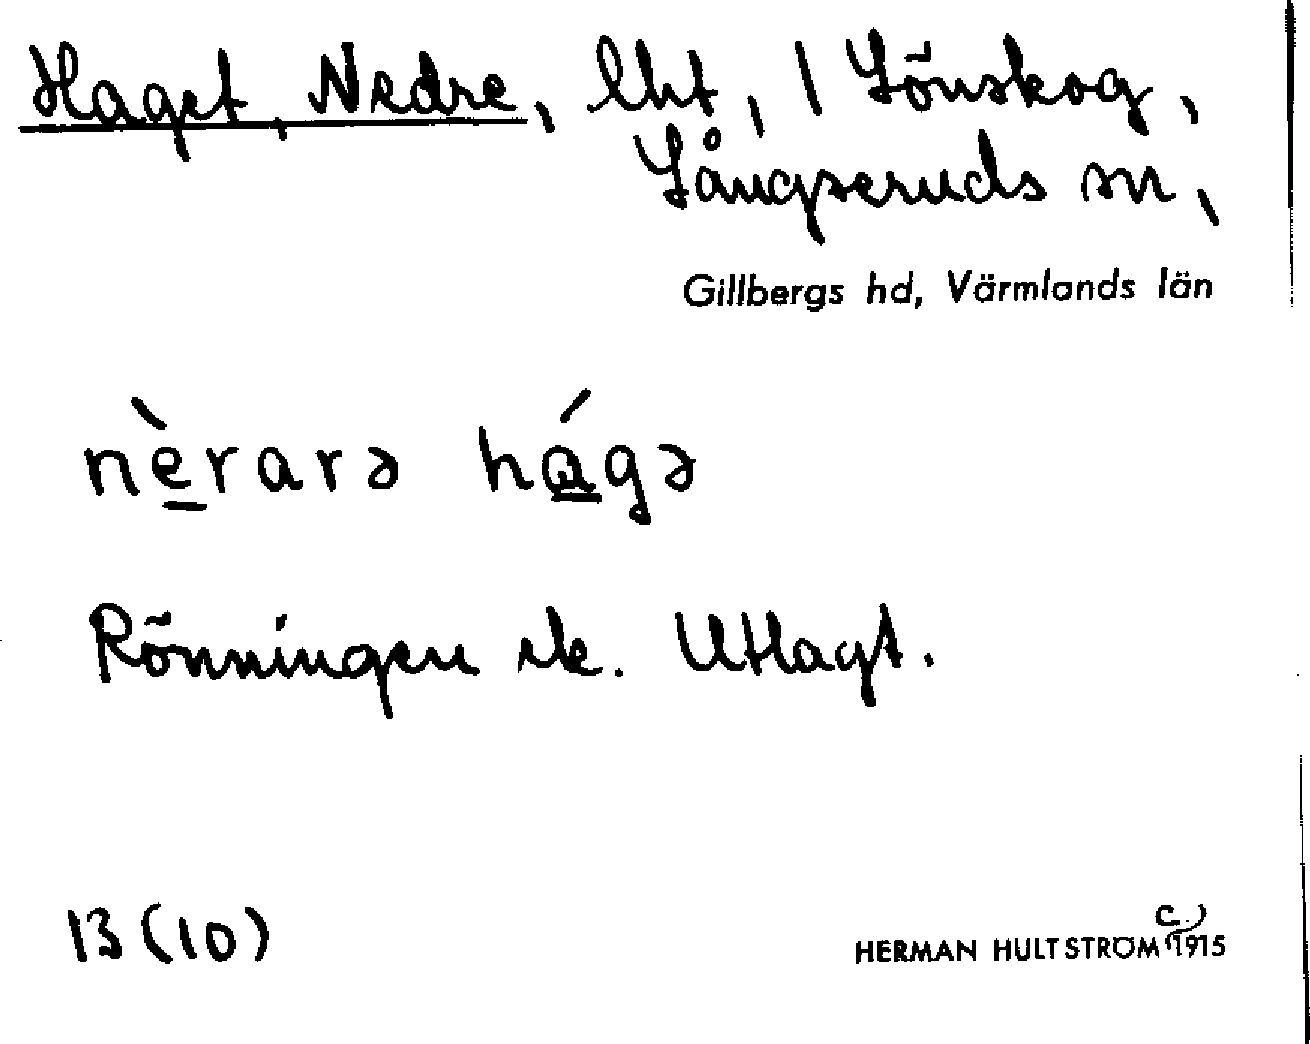 Haget, Nedre, lht, 1 Lönskog,
Långseruds sn,
Gillbergs hd, Värmlands län
nè̱rarə há̱gə
Rönningen rk. Utlagt.
13 (10)
HERMAN HULTSTRÖM c.) 1915